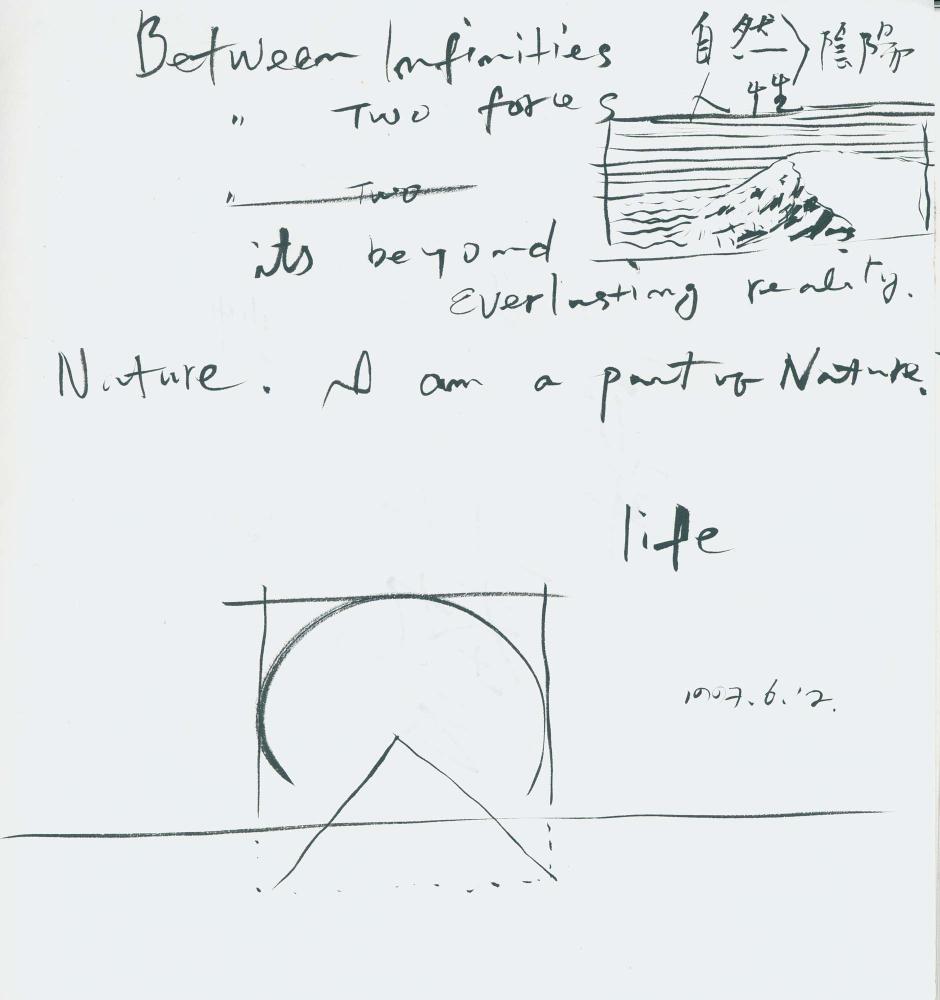 Between Infinities
自然
人性
陰陽
" Two forces
" Two
its beyond
Everlasting reality.
Nature. I am a part of Nature.
life
1997.6.12.